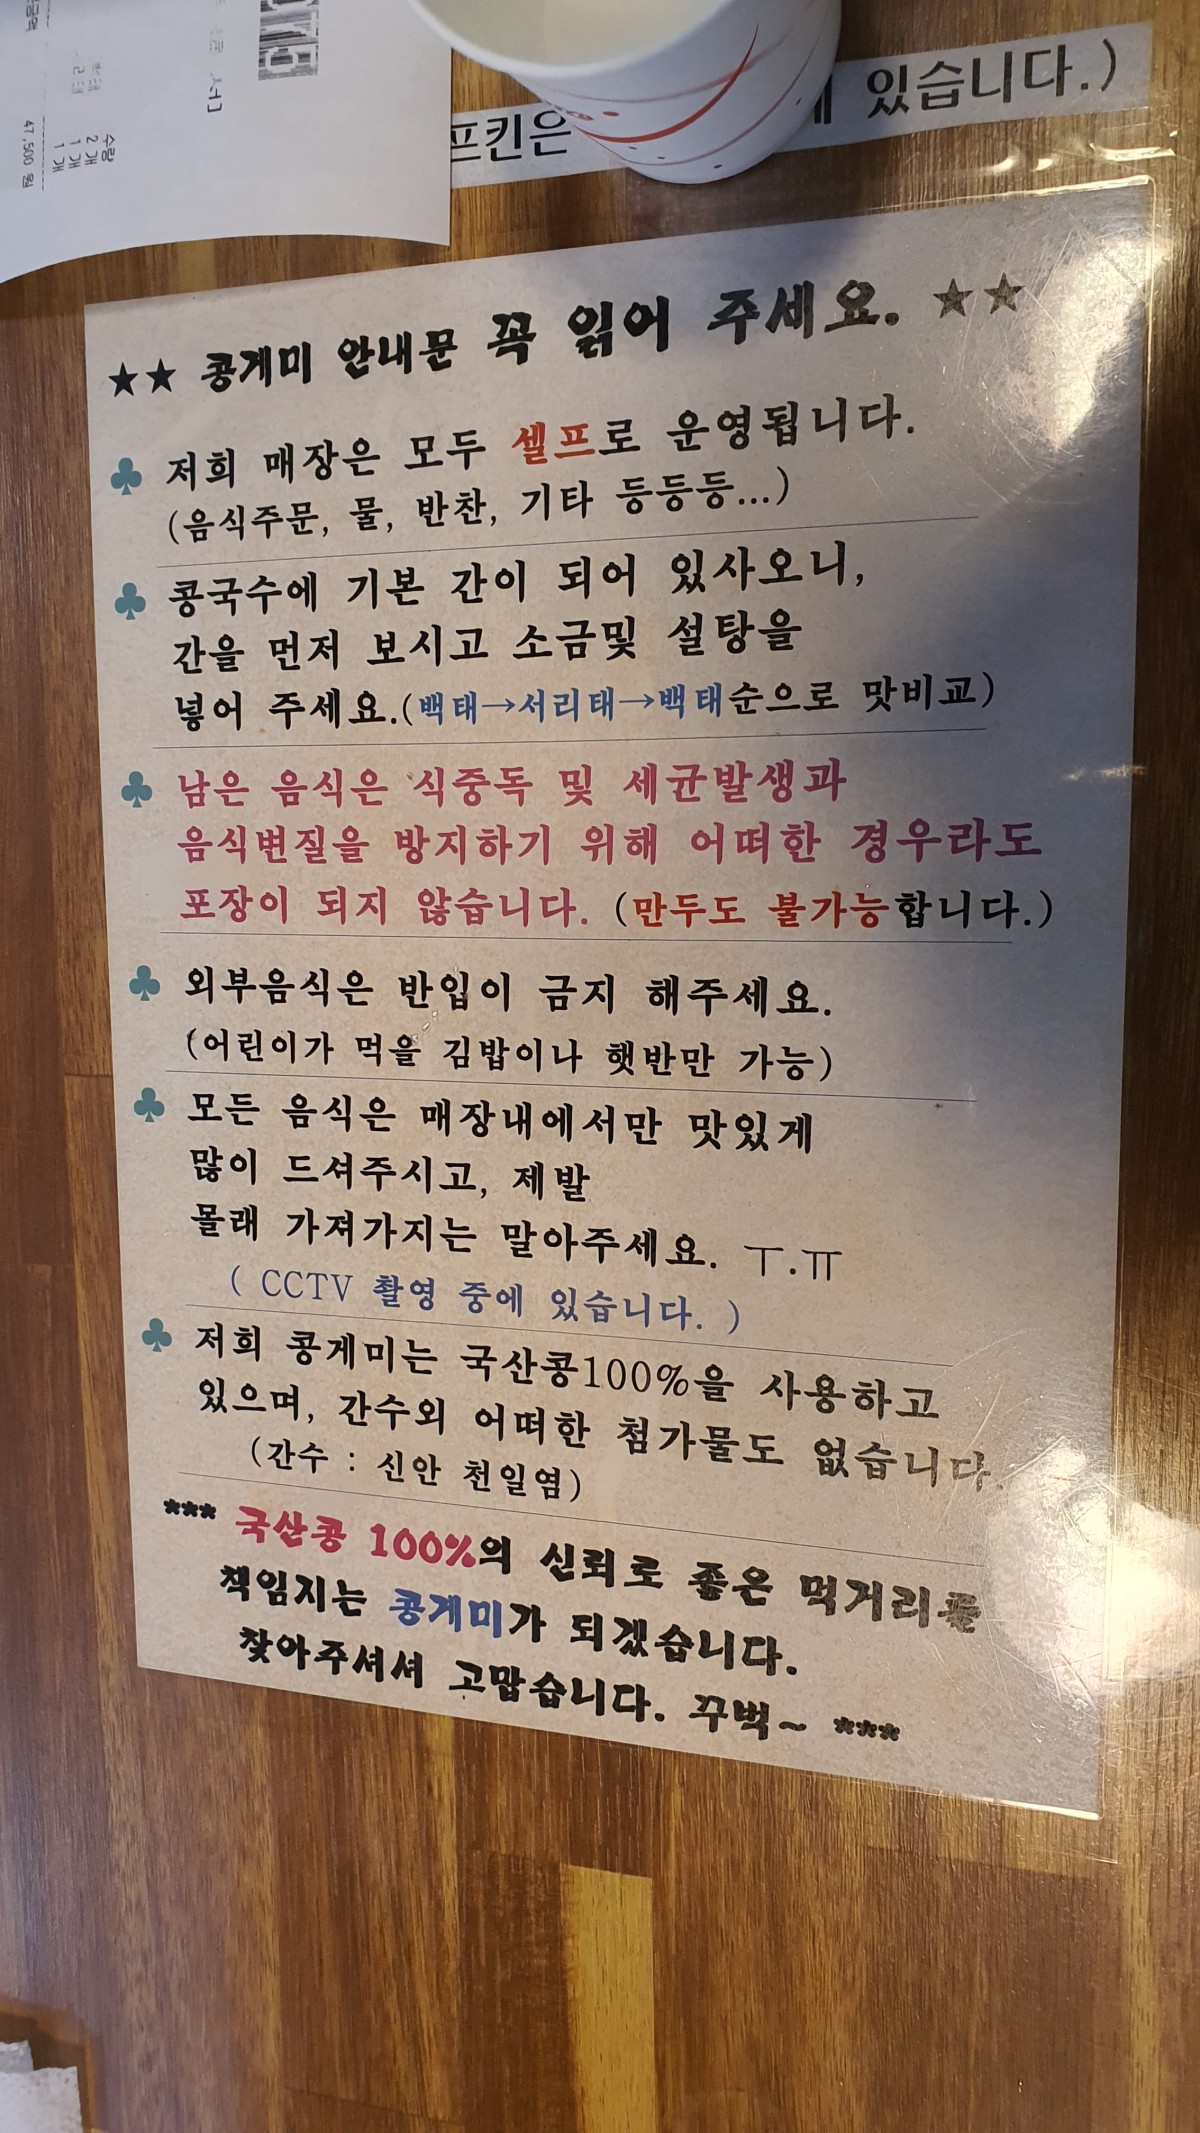 수량
2 개
1 개
1 개
47,500 원
프킨은
있습니다.)
★★ 콩게미 안내문 꼭 읽어 주세요. ★★
♣ 저희 매장은 모두 셀프로 운영됩니다.
(음식주문, 물, 반찬, 기타 등등등...)
♣ 콩국수에 기본 간이 되어 있사오니,
간을 먼저 보시고 소금및 설탕을
넣어 주세요.(백태→서리태→백태순으로 맛비교)
♣ 남은 음식은 식중독 및 세균발생과
음식변질을 방지하기 위해 어떠한 경우라도
포장이 되지 않습니다. (만두도 불가능합니다.)
♣ 외부음식은 반입이 금지 해주세요.
(어린이가 먹을 김밥이나 햇반만 가능)
♣ 모든 음식은 매장내에서만 맛있게
많이 드셔주시고, 제발
몰래 가져가지는 말아주세요. ㅜ.ㅠ
( CCTV 촬영 중에 있습니다. )
♣ 저희 콩게미는 국산콩100%을 사용하고
있으며, 간수외 어떠한 첨가물도 없습니다.
(간수 : 신안 천일염)
*** 국산콩 100%의 신뢰로 좋은 먹거리를
책임지는 콩게미가 되겠습니다.
찾아주셔셔 고맙습니다. 꾸벅~ ***